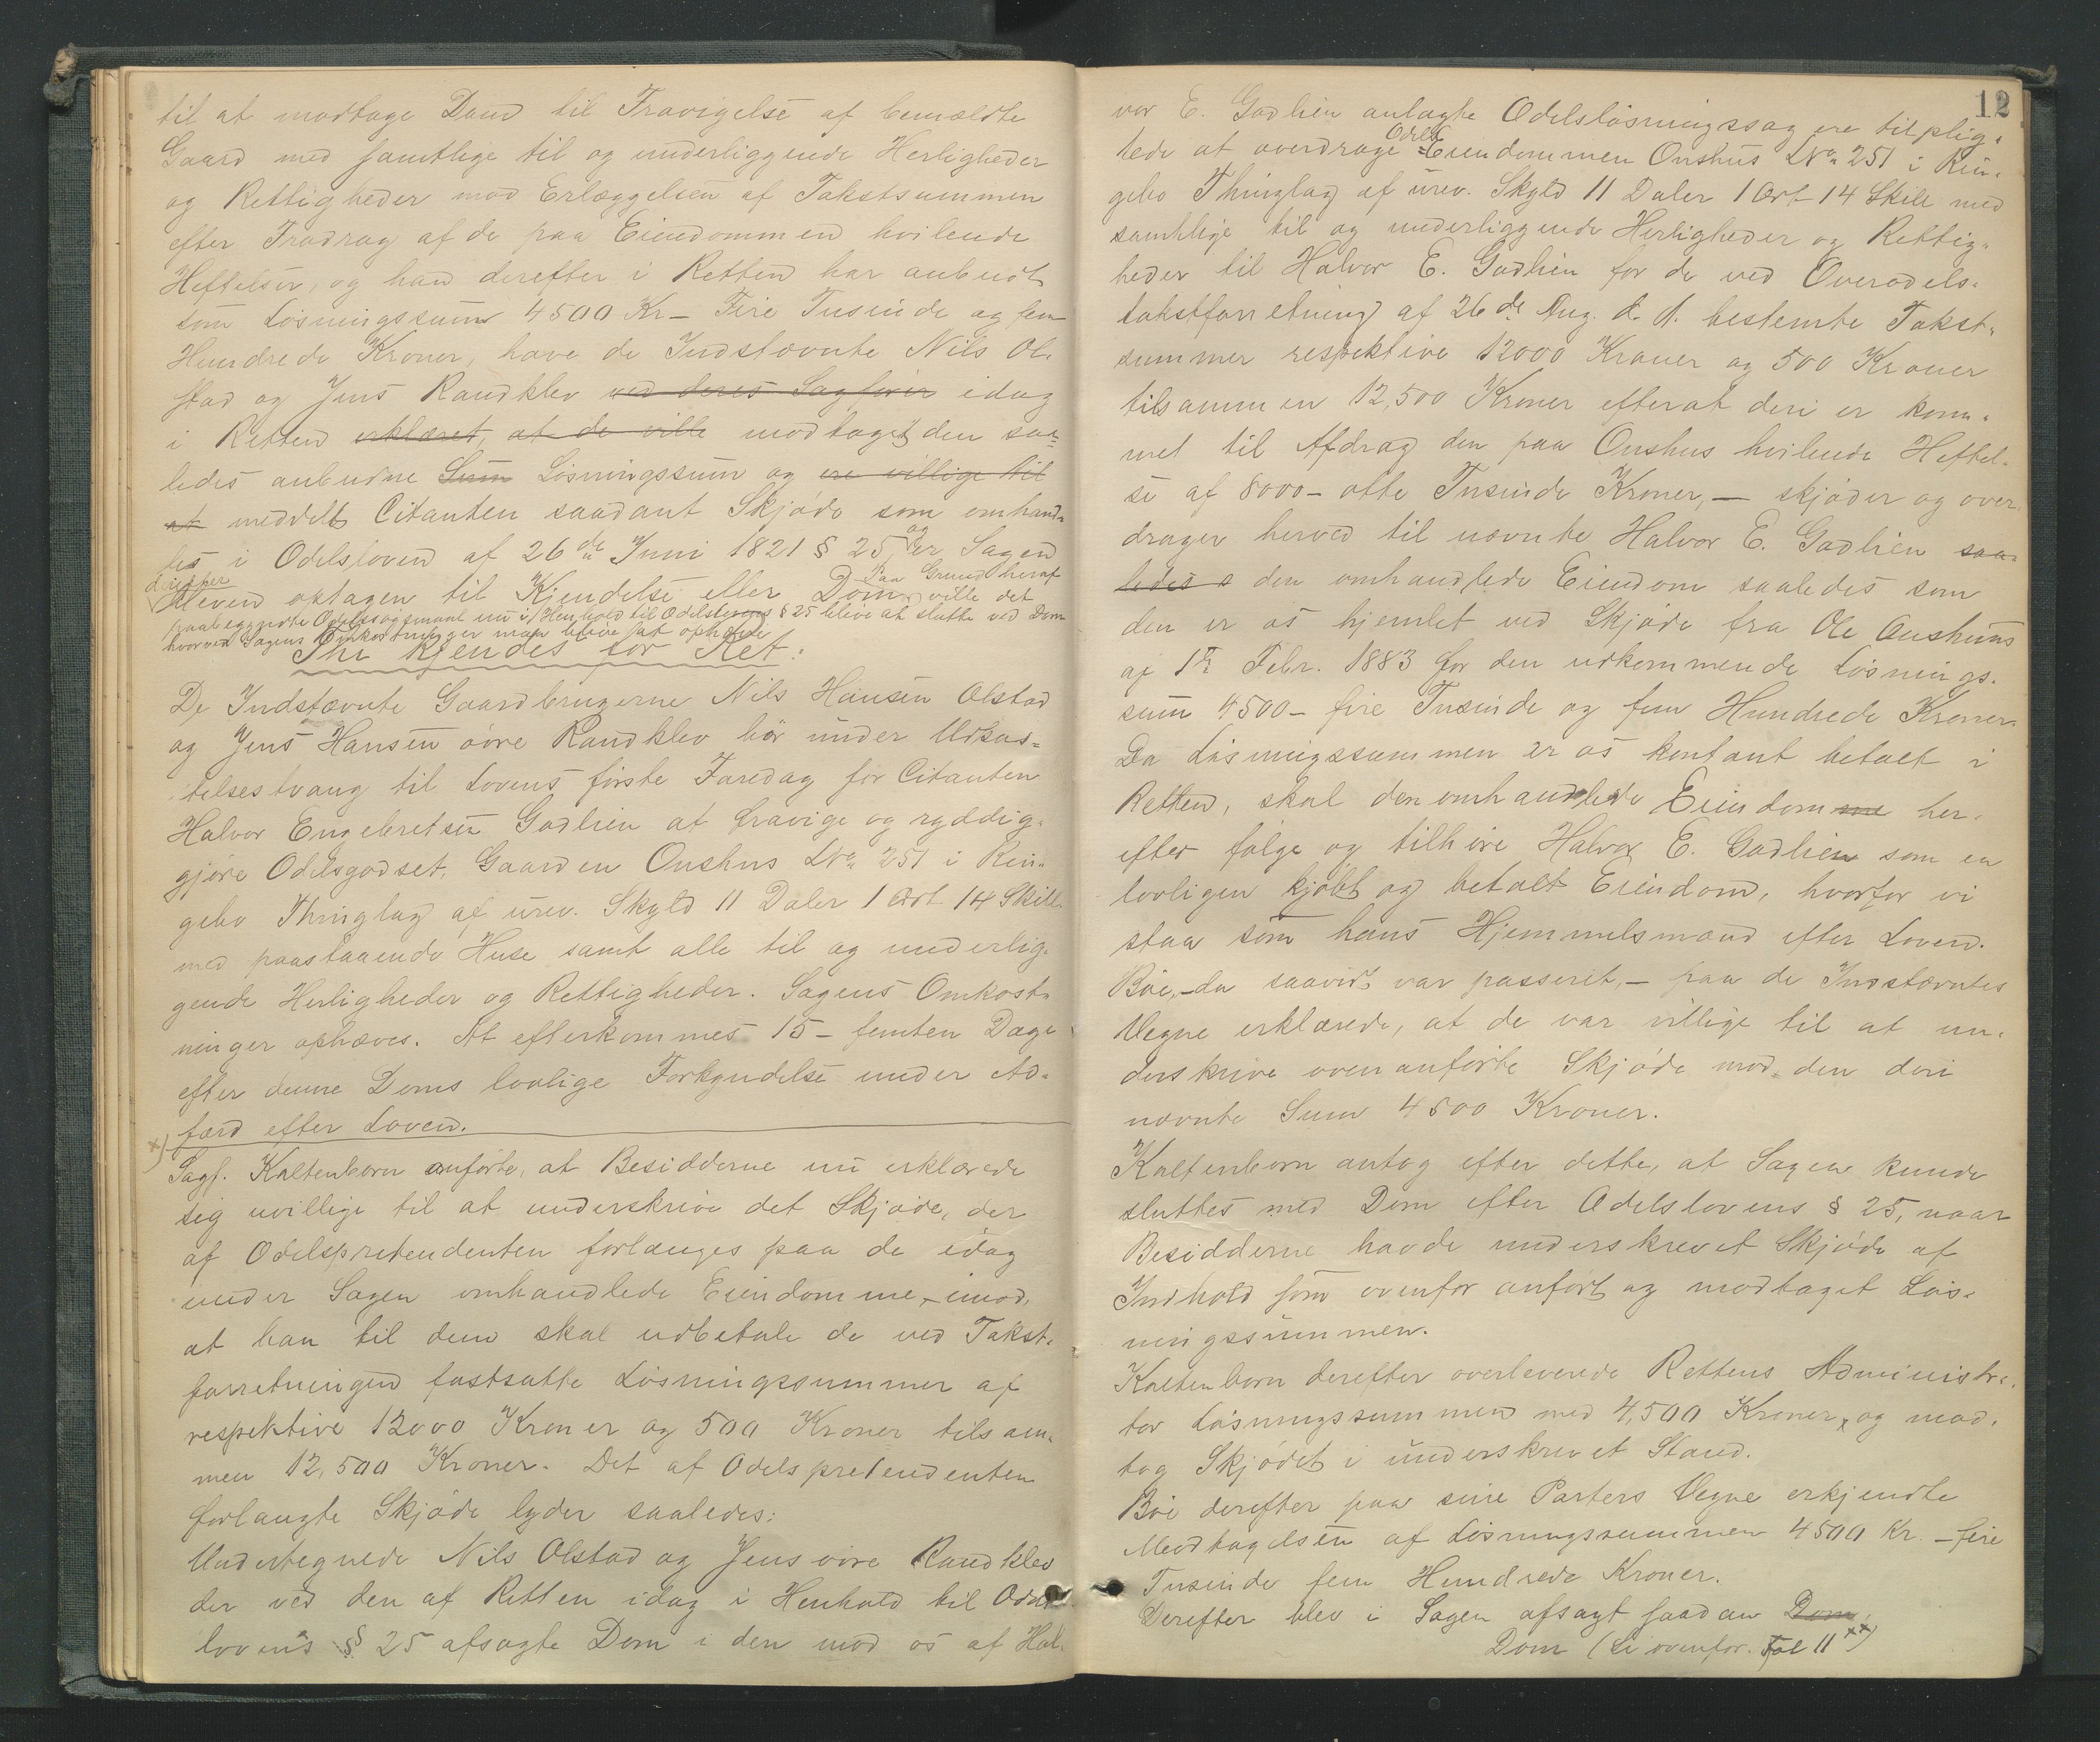 til at modtage Dom til Fravigelse af bemældte
Gaard med samtlige til og underliggende Herligheder
og Rettigheder mod Erlæggelsen af Takstsummen
efter Fradrag af de paa Eiendommen hvilende
Heftelser, og han derefter i Retten har anbudt
som Løsningssum 4500 Kr – Fire Tusinde og fem
Hundrede Kroner, have de Indstævnte Nils Ol-
stad og Jens Randklev ved deres Sagfører idag
i Retten erklæret, at de ville modtaget den saa-
ledes anbudne Sum Løsningssum og ere villige til
at meddelt Citanten saadant Skjøde som omhand-
les i Odelsloven af 26de Juni 1821 § 25, og er Sagen
derefter
bleven optagen til Kjendelse eller Dom. Paa Grund heraf ville det
paabegyndte Odelssøgsmaal nu i Henhold til Odelslovens § 25 blive at slutte ved Dom
hvorved Sagens Omkostninger maa blive at ophæve
Thi kjendes for Ret:
De Indstævnte Gaardbrugerne Nils Hansen Olstad
og Jens Hansen øvre Randklev bør under Udkas-
telsestvang til Lovens første Faredag for Citanten
Halvor Engebretsen Gadlien at fravige og ryddig-
gjøre Odelsgodset, Gaarden Onshus LNo 251 i Rin-
gebo Thinglag af urev. Skyld 11 Daler 1 Ort 14 Skill.
med paastaaende Huse samt alle til og underlig-
gende Herligheder og Rettigheder. Sagens Omkost-
ninger ophæves. At efterkommes 15 – femten Dage
efter denne Doms lovlige Forkyndelse under Ad-
færd efter Loven.
x) Sagf. Kaltenborn anførte, at Besidderne nu erklærede
sig uvillige til at underskrive det Skjøde, der
af Odelspretendenten forlanges paa de idag
under Sagen omhandlede Eiendomme, – imod,
at han til dem skal udbetale de ved Takst-
forretningen fastsatte Løsningssummer af
respektive 12000 Kroner og 500 Kroner tilsam-
men 12,500 Kroner. Det af Odelspretendenten
forlangte Skjøde lyder saaledes:
Undertegnede Nils Olstad og Jens øvre Randklev
der ved den af Retten idag i Henhold til Odels
lovens § 25 afsagte Dom i den mod os af Hal-
12
vor E. Gadlien anlagte Odelsløsningssag ere tilplig-
tede at overdrage Odels Eiendommen Onshus LNo 251 i Rin-
gebo Thinglag af urev. Skyld 11 Daler 1 Ort 14 Skill med
samtlige til og underliggende Herligheder og Rettig-
heder til Halvor E. Gadlien for de ved Overodels-
takstforretning af 26de Aug. d. A. bestemte Takst-
summer respektive 12000 Kroner og 500 Kroner
tilsammen 12,500 Kroner efterat deri er kom-
met til Afdrag den paa Onshus hvilende Heftel-
se af 8000 – otte Tusinde Kroner, – skjøder og over-
drager herved til nævnte Halvor E. Gadlien saa-
ledes s den omhandlede Eiendom saaledes som
den er os hjemlet ved Skjøde fra Ole Onshuus
af 1ste Febr. 1883 for den udkommende Løsnings-
sum 4500 – fire Tusinde og fem Hundrede Kroner.
Da Løsningssummen er os kontant betalt i
Retten, skal den omhandlede Eiendom me her-
efter følge og tilhøre Halvor E. Gadlien som en
lovligen kjøbt og betalt Eiendom, hvorfor vi
staa som hans Hjemmelsmænd efter Loven.
Bøe, – da saavidt var passeret, – paa de Indstævntes
Vegne erklærede, at de var villige til at un-
derskrive ovenanførte Skjøde mod den deri
nævnte Sum 4500 Kroner.
Kaltenborn antog efter dette, at Sagen kunde
sluttes med Dom efter Odelslovens § 25, naar
Besidderne havde underskrevet Skjøde af
Indhold som ovenfor anført og modtaget Løs-
ningssummen.
Kaltenborn derefter overleverede Rettens Administra-
tor Løsningssummen med 4,500 Kroner, og mod-
tog Skjødet i underskrevet Stand.
Bøe derefter paa sine Parters Vegne erkjendte
Modtagelsen af Løsningssummen 4500 Kr. – fire
Tusinde fem Hundrede Kroner.
Derefter blev i Sagen afsagt saadan Dom,
Dom (Se ovenfor. Fol 11 xx)